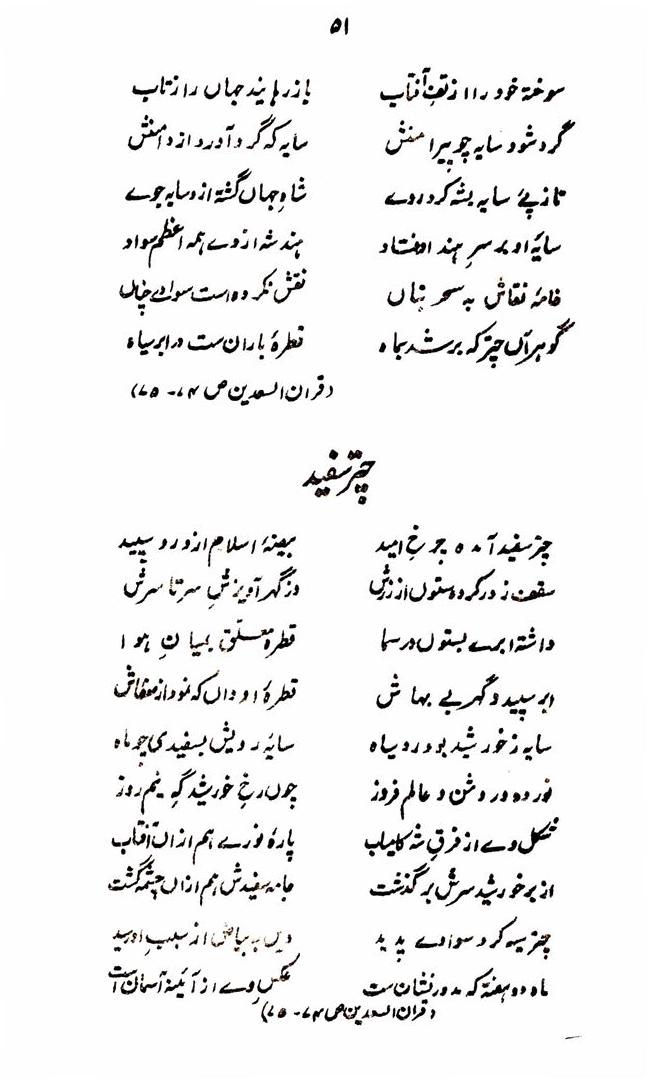 ۵۱
سوختهٔ خود را از تف آفتاب بازرهانند جهاں را ز تاب
گرد شود سایه چو پیرامنش سایه که گرد آورد از دامنش
تا ز پئے سایه بشه کرد روے شاهِ جهاں گشته ازو سایه جوے
سایهٔ او بر سرِ هند اوفتاد هند شه از وے همه اعظم سواد
خامهٔ نقاش به سحر بناں نقش نکرده است سوادے چناں
گوهر آں چتر که بر شد بماه قطرهٔ باران ست در ابر سیاه
(قران السعدین ص ۷۴-۷۵)
چترِ سفید
چتر سفید آمده چرخِ امید بیضهٔ اسلام ازو رو سپید
سقف ز در کرده ستوں از زرش وز گهر آویزشِ سر تا سرش
داشته ابرے بستوں در سما قطرهٔ معلق بمیانِ هوا
ابر سپید و گهر بے بهاش قطرهٔ او داں که نمود از صفاش
سایه ز خورشید بود رو سیاه سایه رویش بسفیدی چو ماه
نور ده و روشن و عالم فروز چوں رخِ خورشید گهِ نیم روز
شکل وے از فرقِ شه کامیاب پارهٔ نورے هم ازاں آفتاب
از بر خورشید سرش بر گذشت جامه سفیدش هم ازاں چشمه گشت
چتر سیه کرد سوادے پدید ویں به بیاضی از سبب او رسید
ماه دو هفته که مدور نشان ست عکس وے از آئینهٔ آسمان است
(قران السعدین ص ۷۴-۷۵)